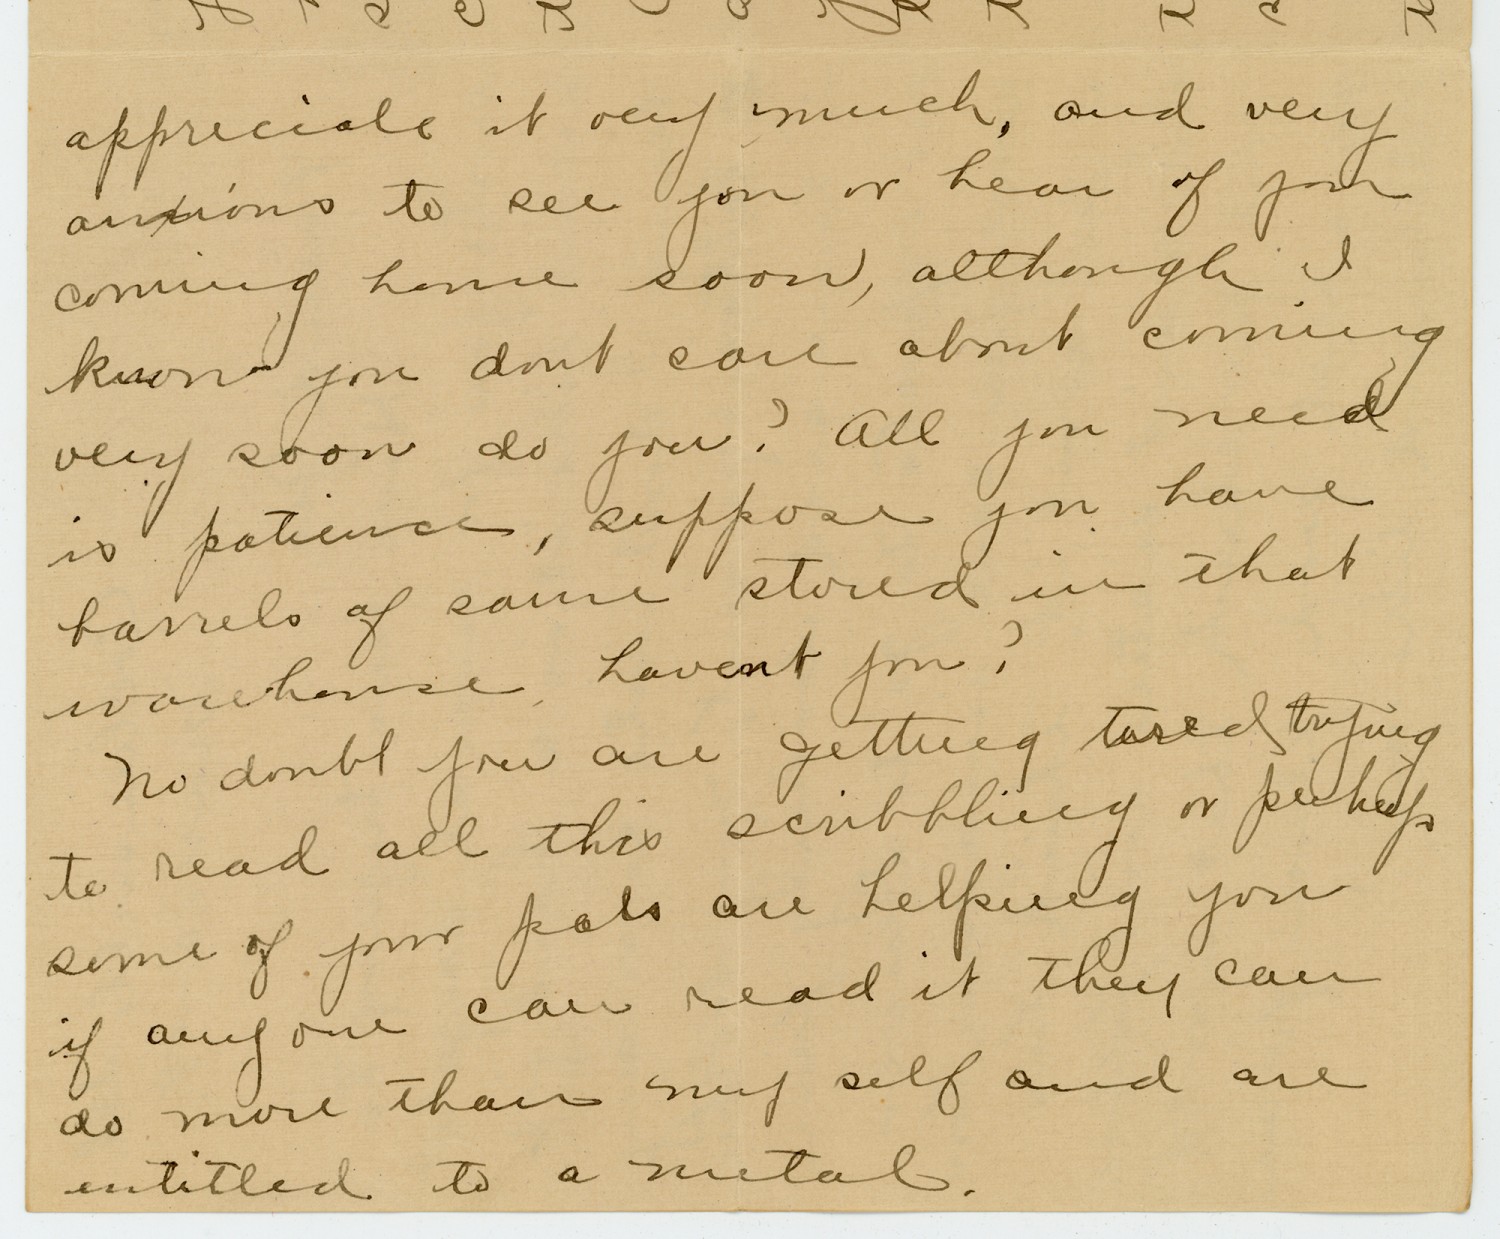 appreciate it very much, and very
anxious to see you or hear of you
coming home soon, although I
know you dont care about coming
very soon do you? All you need
is patience, suppose you have
barrels of same stored in that
warehouse, havent you?
No doubt you are getting tired trying
to read all this scribbling or perhaps
some of your pals are helping you
if anyone can read it they can
do more than my self and are
entitled to a metal.